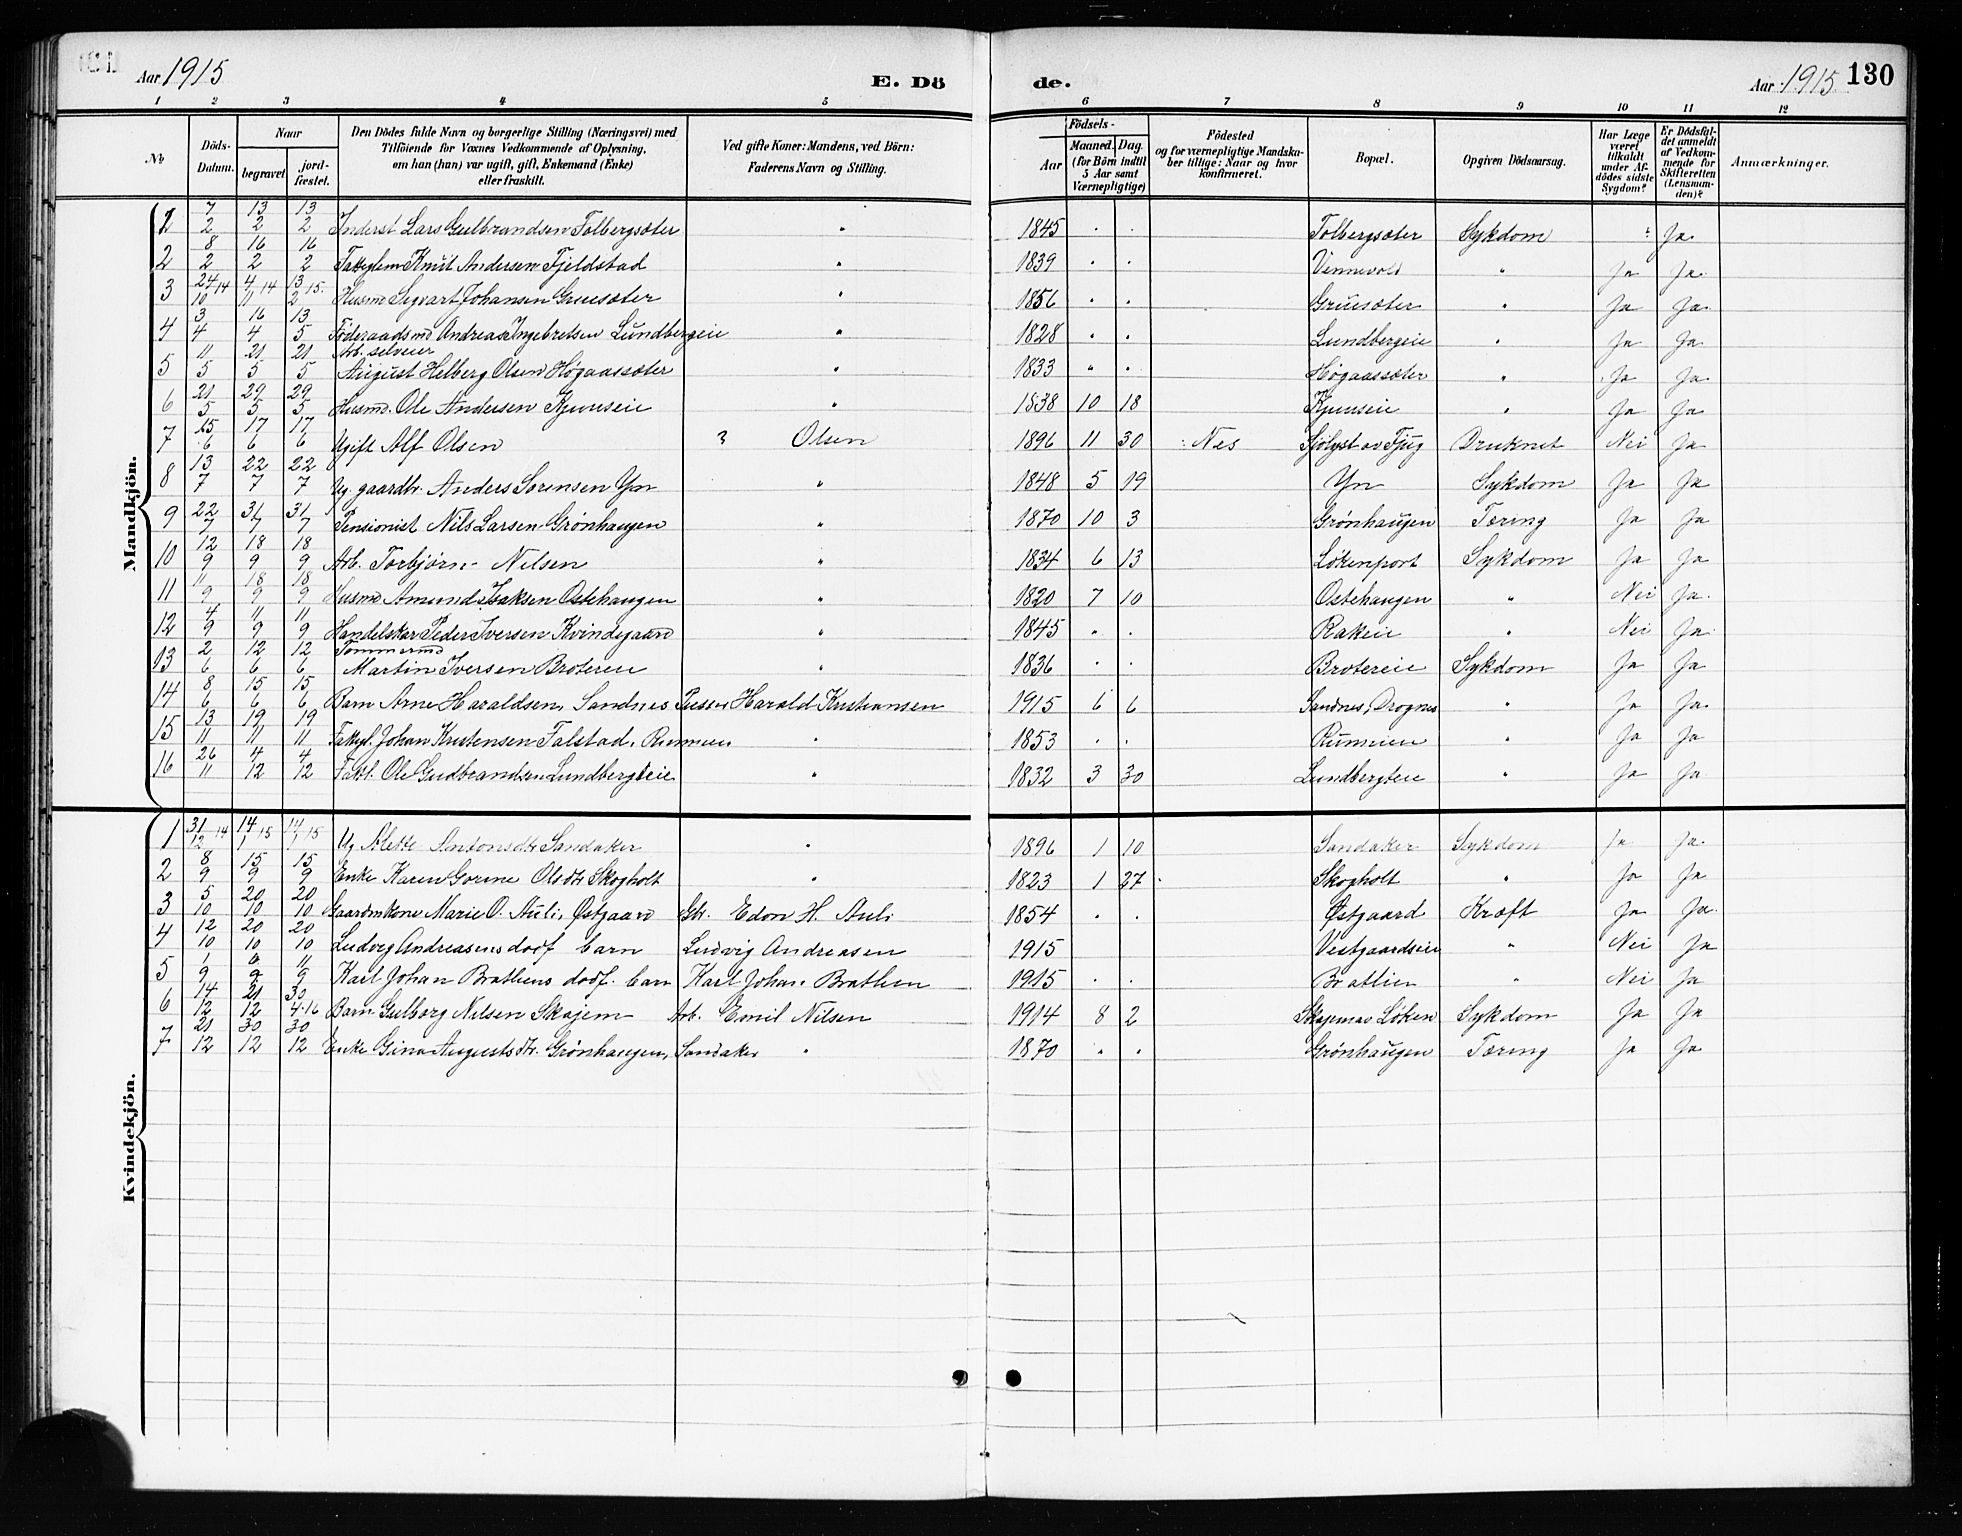 Aar 1915 E. Dö de. Aar 1915 130
1 2 3 4 5 6 7 8 9 10 11 12
No
Döds-Datum.
Naar
begravet
jord-fæstet.
Den Dödes fulde Navn og borgerlige Stilling (Næringsvei) med Tilföiende for Voxnes Vedkommende af Oplysning, om han (hun) var ugift, gift, Enkemand (Enke) eller fraskilt.
Ved gifte Koner: Mandens, ved Börn: Faderens Navn og Stilling.
Födsels-
Aar
Maaned. Dag.
(for Börn indtil 5 Aar samt Værnepligtige)
Födested og for værnepligtige Mandskaber tillige: Naar og hvor konfirmeret.
Bopæl.
Opgiven Dödsaarsag.
Har Læge været tilkaldt under Afdödes sidste Sygdom?
Er Dödsfaldet anmeldt af Vedkommende for Skifteretten (Lensmanden)?
Anmærkninger.
Mandkjön.
1 7/2 13/2 13/2 Inderst Lars Gulbrandsen Tolbergsæter " 1845 . . Tolbergsæter Sykdom " Ja
2 8/2 16/2 16/2 Fattiglem Knut Andersen Fjeldstad " 1839 . . Vennevold " Ja Ja
3 24/10 14 4/11 14 13/2 15. Husmd Sigvart Johansen Gruesæter " 1856 . . Gruesæter " Ja Ja
4 3/4 16/4 13/5 Föderaadsmd Andreas Ingebretsen Lundbergeie " 1828 . . Lundbergeie " Ja Ja
5 11/5 21/5 21/5 Arb. selveier August Helberg Olsen Høgaassæter " 1833 " . Høgaassæter " Ja Ja
6 21/5 29/5 29/5 Husmd. Ole Andersen Kjennseie " 1838 10 18 Kjennseie " Ja Ja
7 15/6 17/6 17/6 Ugift Alf Olsen ? Olsen 1896 11 30 Nes Sjølyst av Fjug Druknet Nei Ja
8 13/7 22/7 22/7 Ug. gaardbr. Anders Sörensen Yn " 1848 5 19 Yn Sykdom Ja Ja
9 22/7 31/7 31/7 Pensionist Nils Larsen Grönhaugen " 1870 10 3 Grönhaugen Tæring Ja Ja
10 12/9 18/9 18/9 Arb. Torbjørn Nilsen " 1834 6 13 Løkenport Sykdom Ja Ja
11 11/9 18/9 18/9 Husmd Amund Isaksen Ostehaugen " 1820 7 10 Ostehaugen " Nei Ja
12 4/9 11/9 11/9 Handelskar Peder Iversen Kvindegaard " 1845 " . Rakeie " Nei Ja
13 2/6 12/6 12/6 Tømmermd Martin Iversen Broterei " 1836 . . Brotereie Sykdom Ja Ja
14 8/6 15/6 15/6 Barn Arne Haraldsen, Sandnes Harald Kristiansen 1915 6 6 Sandnes, Drognes " Ja Ja
15 13/11 19/11 19/11 Fattigl. Johan Kristensen Falstad, Rumeien " 1853 . . Rumeien " Ja Ja
16 26/11 4/12 4/12 Fattl. Ole Gudbrandsen Lundbergteie " 1832 3 30 Lundbergteie " Ja Ja
Kvindekjön.
1 31/12 14 14/1 15 14/1 15 Ug Alette Antonsdtr Sandaker " 1896 1 10 Sandaker Sykdom Ja Ja
2 8/9 15/9 15/9 Enke Karen Gorine Olsdtr Skogholt " 1823 1 27 Skogholt " Ja Ja
3 5/10 20/10 20/10 Gaardmkone Marie O. Auli, Østgaard Gbr. Edon H. Auli 1854 . . Østgaard Kræft Ja Ja
4 12/10 20/10 20/10 Ludvig Andreasens dødf. barn Ludvig Andreasen 1915 Vestgaardseie " Nei Ja
5 1/9 9 11/9 Karl Johan Brathens dødf. barn Karl Johan Brathen 1915 . . Bratlien " Nei Ja
6 14/12 21/12 30/4.16 Barn Gulborg Nilsen Skajem Arb. Emil Nilsen 1914 8 2 Løken Sykdom Ja Ja
7 21/12 30/12 30/12 Enke Gina Augustsdtr. Grönhaugen, Sandaker " 1870 " . Grönhaugen Tæring Ja Ja